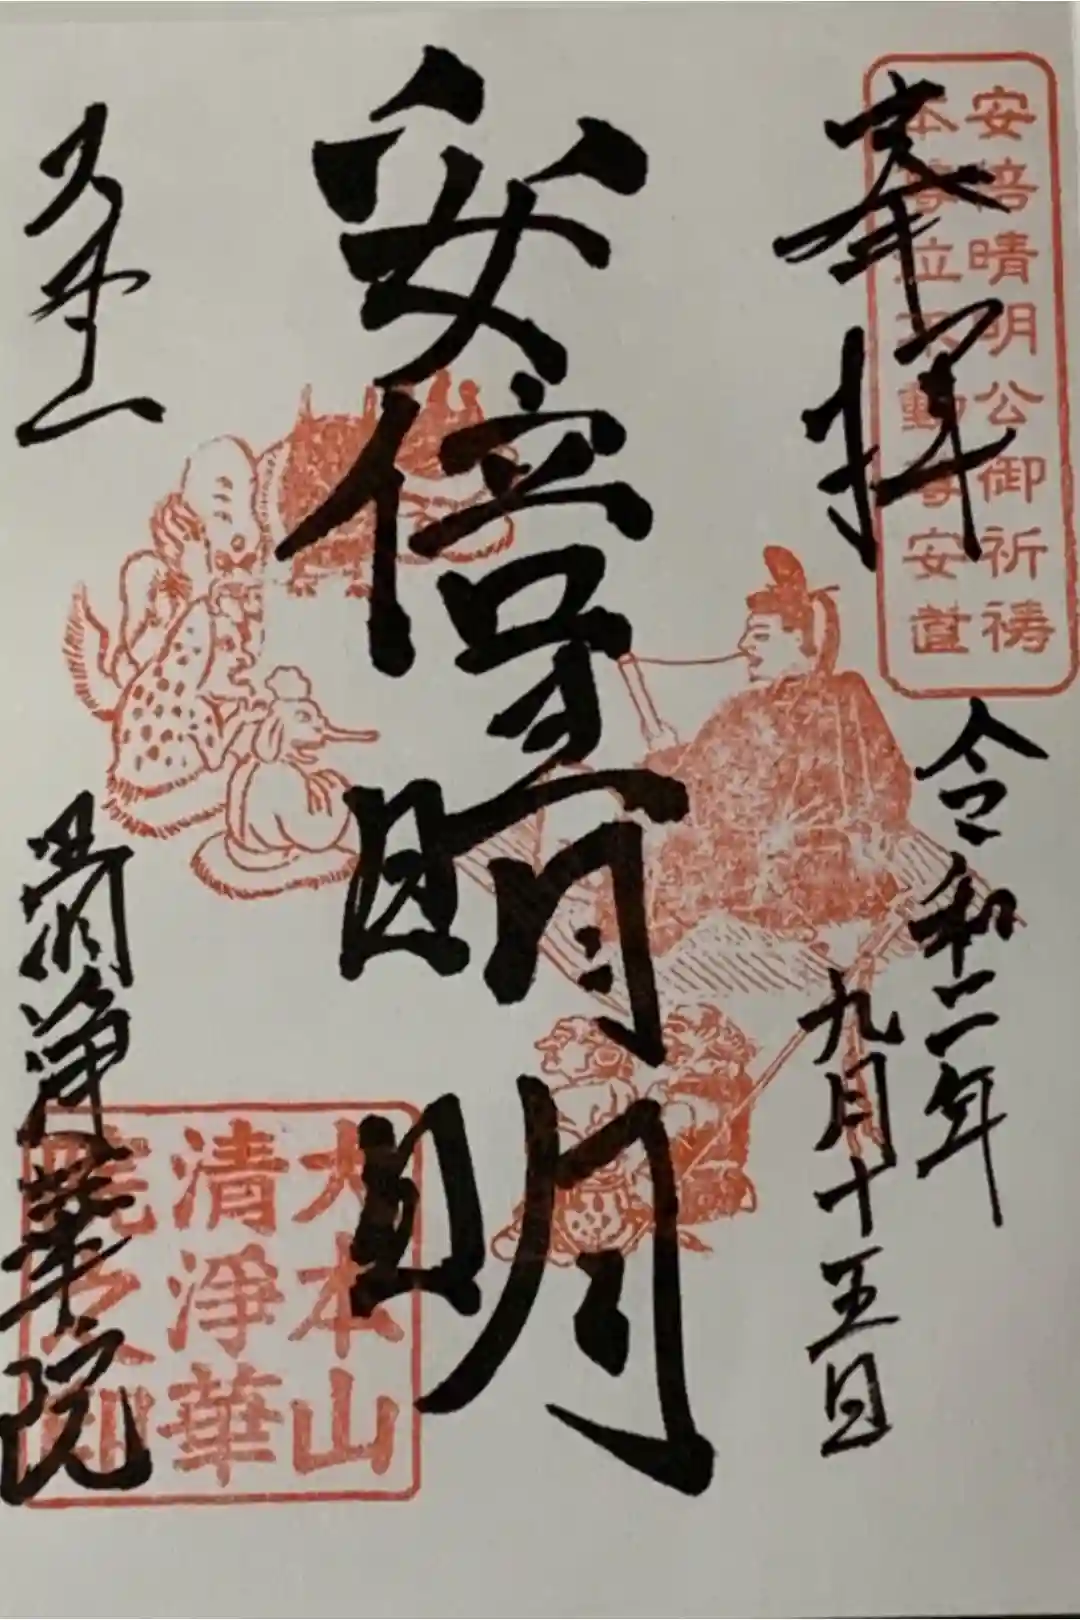 安倍晴明公御祈祷
本尊泣不動尊安置
奉拝
令和二年
九月十五日
安倍晴明
大本山
清浄華院
大本山
清淨華
院之印